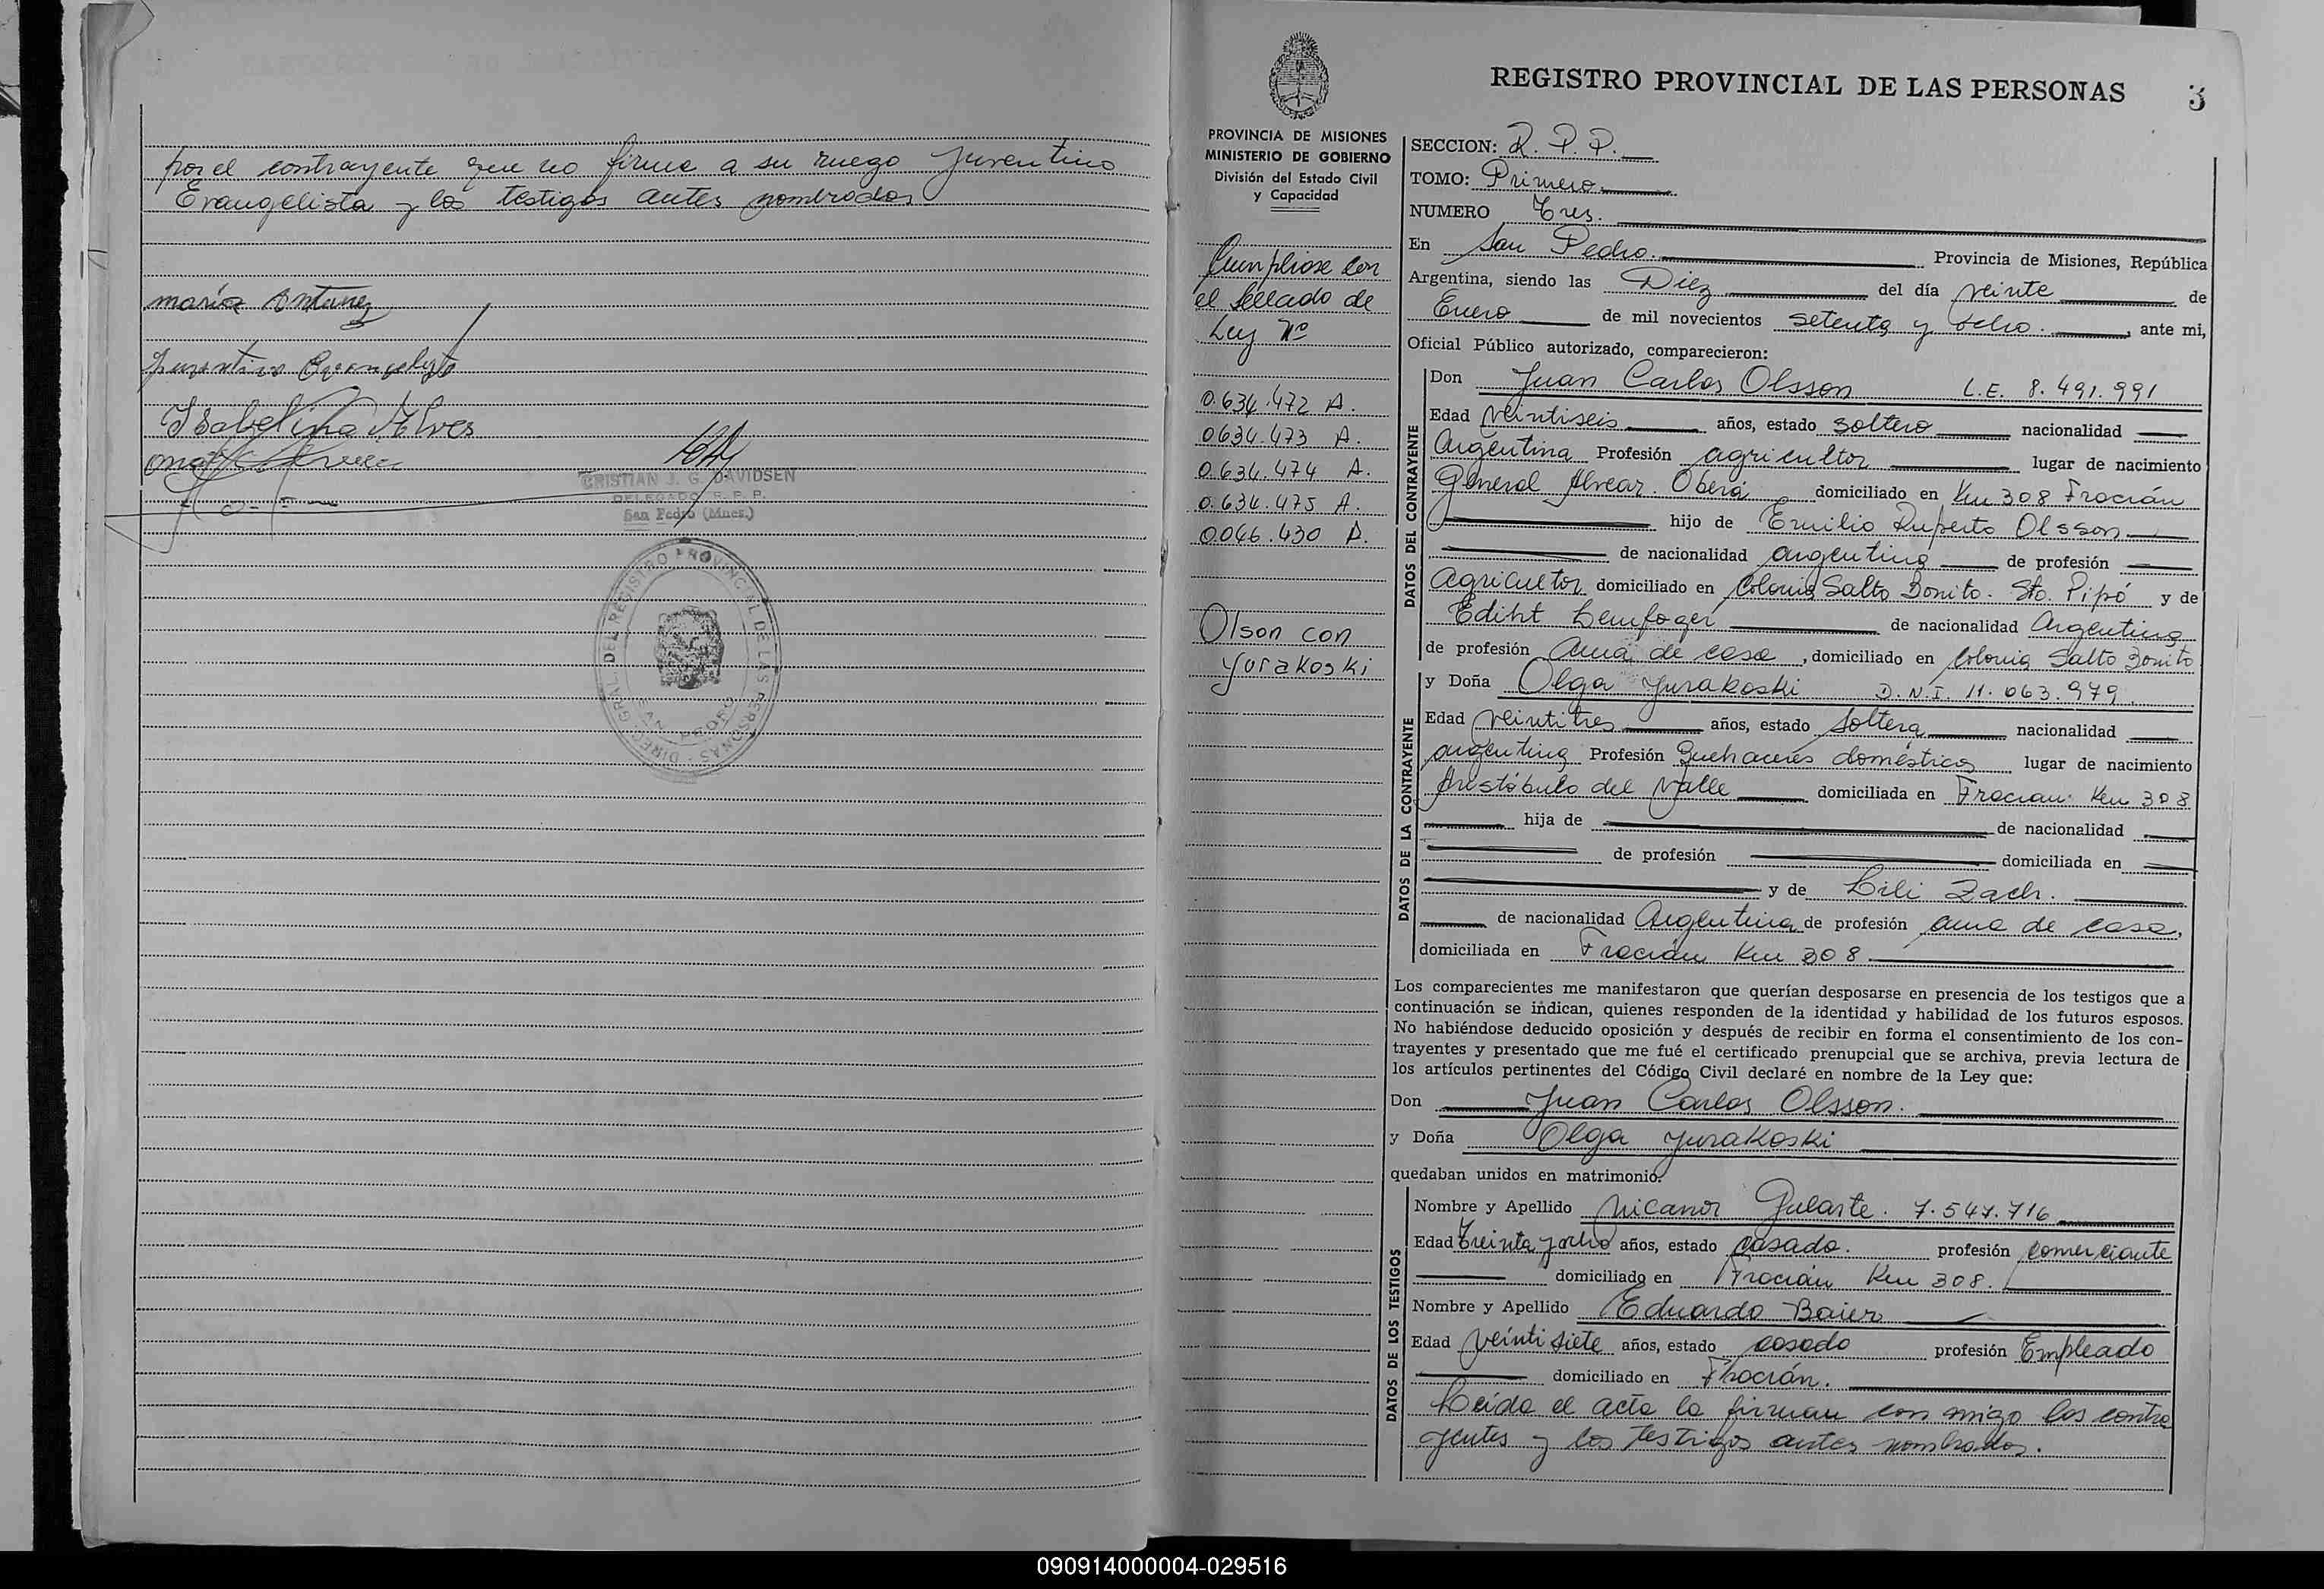 por el contrayente que no firma a su ruego Juventino
Evangelista y los testigos antes nombrados
maria Antunez
Juventino Evangelista
Isabelina Alves
CRISTIAN J. G. DAVIDSEN
DELEGADO R. P. P.
San Pedro (Mnes.)
DIREC. GRAL. DEL REGISTRO PROVINCIAL DE LAS PERSONAS
SAN PEDRO
REGISTRO PROVINCIAL DE LAS PERSONAS 3
PROVINCIA DE MISIONES
MINISTERIO DE GOBIERNO
División del Estado Civil
y Capacidad
Cumpliose con
el sellado de
Ley Nº
0.634.472 A.
0634.473 A.
0.634.474 A.
0.634.475 A.
0046.430 A.
Olson con
Yurakoski
SECCION: R. P. P.
TOMO: Primero.
NUMERO Tres.
En San Pedro. Provincia de Misiones, República
Argentina, siendo las Diez del día veinte de
Enero de mil novecientos setenta y ocho. , ante mi,
Oficial Público autorizado, comparecieron:
DATOS DEL CONTRAYENTE
Don Juan Carlos Olsson L.E. 8.491.991
Edad veintiseis años, estado soltero nacionalidad
Argentina Profesión agricultor lugar de nacimiento
General Alvear. Oberá domiciliado en Km 308 Fracrán
hijo de Emilio Ruperto Olsson
de nacionalidad argentina de profesión
agricultor domiciliado en Colonia Salto Bonito. Sto. Pipó y de
Ediht de nacionalidad Argentina
de profesión Ama de casa , domiciliado en Colonia Salto Bonito
DATOS DE LA CONTRAYENTE
y Doña Olga Yurakoski D.N.I. 11.063.979
Edad veintitres años, estado soltera nacionalidad
argentina Profesión Quehaceres domésticos lugar de nacimiento
Aristóbulo del Valle domiciliada en Fracran Km 308
hija de de nacionalidad
de profesión domiciliada en
y de Lili Zach.
de nacionalidad Argentina de profesión ama de casa,
domiciliada en Fracrán Km 308
Los comparecientes me manifestaron que querían desposarse en presencia de los testigos que a
continuación se indican, quienes responden de la identidad y habilidad de los futuros esposos.
No habiéndose deducido oposición y después de recibir en forma el consentimiento de los con-
trayentes y presentado que me fué el certificado prenupcial que se archiva, previa lectura de
los artículos pertinentes del Código Civil declaré en nombre de la Ley que:
Don Juan Carlos Olsson.
y Doña Olga Yurakoski
quedaban unidos en matrimonio.
DATOS DE LOS TESTIGOS
Nombre y Apellido Nicanor Gularte. 7.547.716
Edad Treinta y ocho años, estado casado. profesión comerciante
domiciliado en Fracrán Km 308.
Nombre y Apellido Eduardo Baier
Edad veinti siete años, estado casado profesión Empleado
domiciliado en Fracrán.
Leída el acta la firman con migo los contra
yentes y los testigos antes nombrados.
090914000004-029516